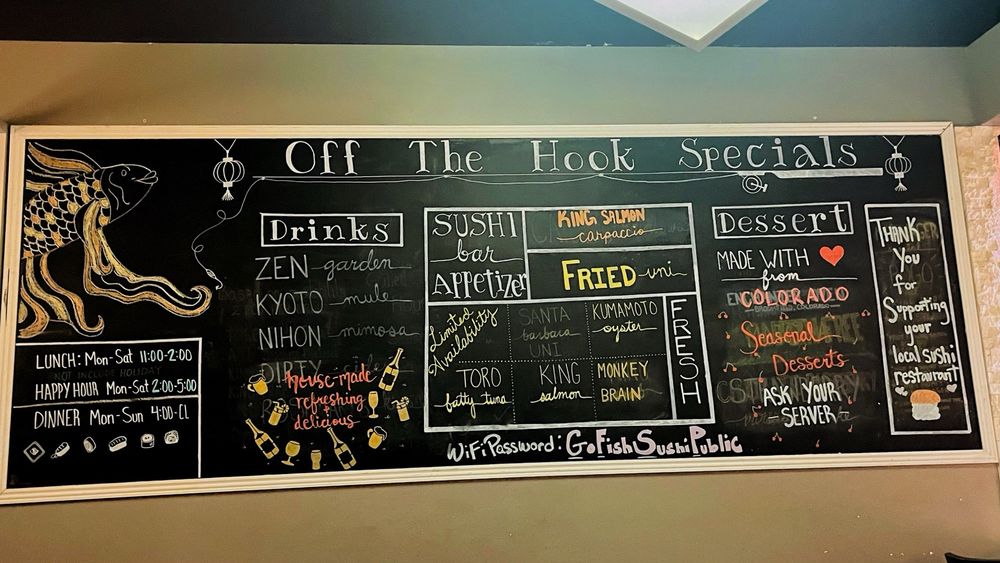 Off The Hook Specials
LUNCH: Mon-Sat 11:00-2:00
NOT INCLUDE HOLIDAY
HAPPY HOUR Mon-Sat 2:00-5:00
DINNER Mon-Sun 4:00-CL
Drinks
ZEN garden
KYOTO mule
NIHON mimosa
DIRTY
house made
refreshing
+
delicious
SUSHI
bar
Appetizer
KING SALMON
carpaccio
FRIED uni
Limited
Availability
SANTA
barbara
UNI
KUMAMOTO
oyster
TORO
fatty tuna
KING
salmon
MONKEY
BRAIN
FRESH
WiFi Password: GoFishSushiPublic
Dessert
MADE WITH
from
COLORADO
Seasonal
Desserts
ASK YOUR
SERVER
THANK
You
for
Supporting
your
local sushi
restaurant